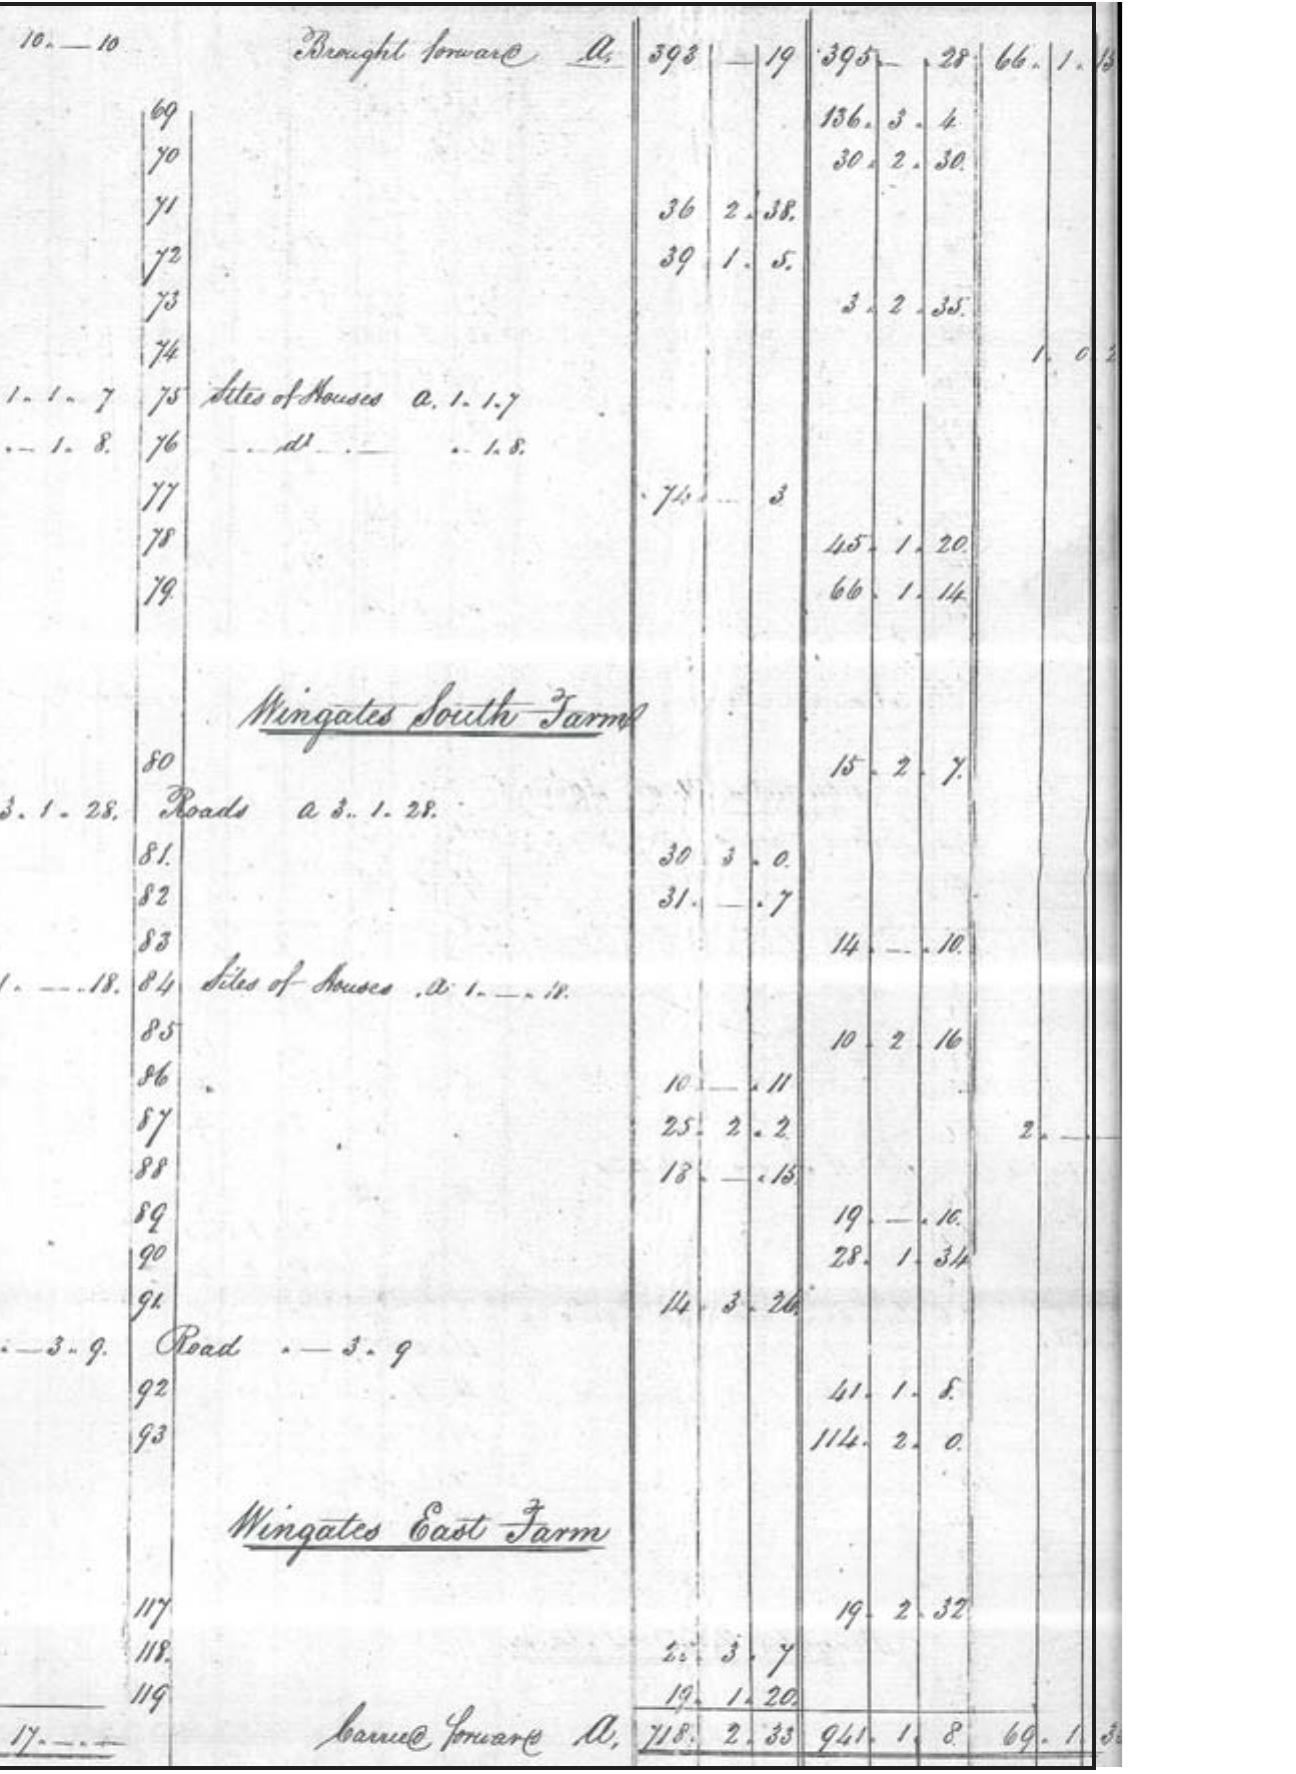 10. — 10 Brought forward A. 393 — 19 395 — . 28 66. 1. 13
69 136. 3. 4
70 30. 2. 30.
71 36 2. 38.
72 39 1. 5.
73 3. 2. 35.
74 1. 0 2
1. 1. 7 75 Sites of Houses a. 1. 1. 7
. — 1. 8. 76 — do — . - 1. 8.
77 74. — 3
78 45. 1. 20.
79. 66. 1. 14
Wingates South Farm
80 15. 2. 7.
3. 1. 28. Roads a 3. 1. 28.
81. 30 3. 0.
82 31. — . 7
83 14. — . 10.
1. — . 18. 84 Sites of Houses . a. 1. — . 18.
85 10 2. 16
86 10. — . 11
87 25. 2. 2 2. —
88 18. — . 15
89 19. — . 10.
90 28. 1. 34
91. 14. 3. 26.
. — 3. 9. Road . — 3. 9
92 41. 1. 8.
93 114. 2. 0.
Wingates East Farm
117 19. 2. 32
118. 25. 3. 7
119 19. 1. 20.
17. — . — Carried forward A. 718. 2. 33 941. 1. 8 69. 1. 3